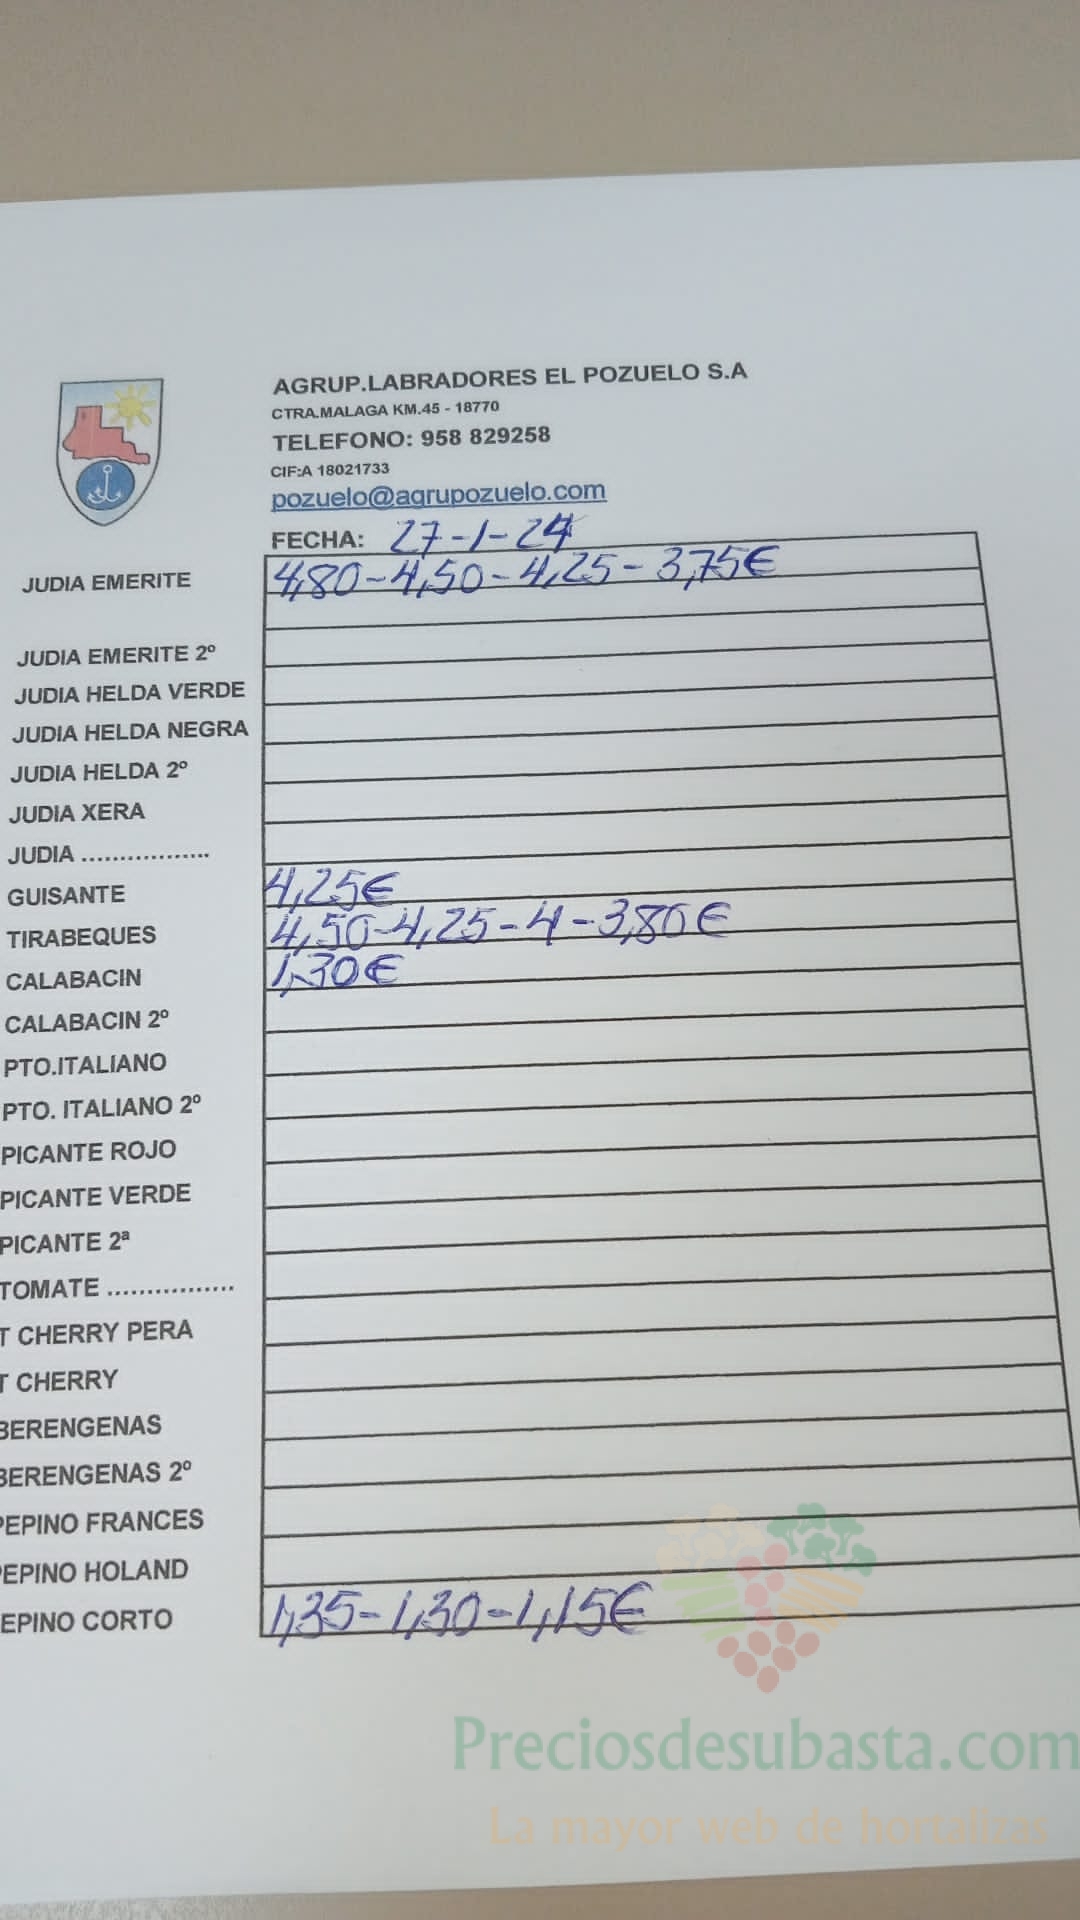 AGRUP.LABRADORES EL POZUELO S.A
CTRA.MALAGA KM.45 - 18770
TELEFONO: 958 829258
CIF:A 18021733
pozuelo@agrupozuelo.com
FECHA: 27-1-24
JUDIA EMERITE 4,80-4,50-4,25-3,75€
JUDIA EMERITE 2º
JUDIA HELDA VERDE
JUDIA HELDA NEGRA
JUDIA HELDA 2º
JUDIA XERA
JUDIA .................
GUISANTE 4,25€
TIRABEQUES 4,50-4,25-4-3,80€
CALABACIN 1,30€
CALABACIN 2º
PTO.ITALIANO
PTO. ITALIANO 2º
PICANTE ROJO
PICANTE VERDE
PICANTE 2ª
TOMATE .................
T CHERRY PERA
T CHERRY
BERENGENAS
BERENGENAS 2º
PEPINO FRANCES
PEPINO HOLAND
EPINO CORTO 1,35-1,30-1,15€
Preciosdesubasta.com
La mayor web de hortalizas